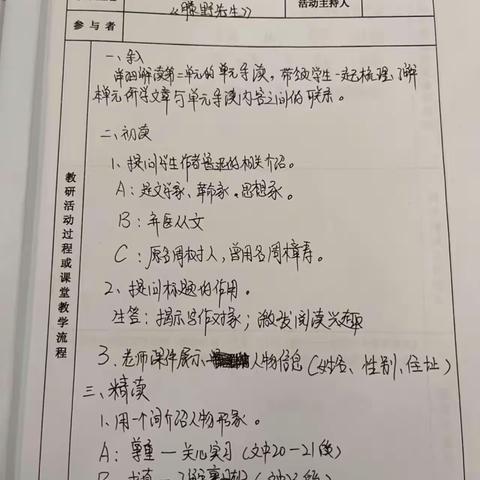 《藤野先生》
活动主持人
参与者
教研活动过程或课堂教学流程
一、导入
详细解读第二单元的单元导读，带领学生一起梳理、了解
本单元所学文章与单元导读内容之间的联系。
二、初读
1、提问学生作者鲁迅的相关介绍。
A：是文学家、革命家、思想家。
B：弃医从文
C：原名周树人，曾用名周樟寿。
2、提问标题的作用。
生答：揭示写作对象；激发阅读兴趣
3、老师课件展示人物信息（姓名、性别、住址）
三、精读
1、用一个词介绍人物形象。
A：尊重 — 关心实习（文中20-21段）
B